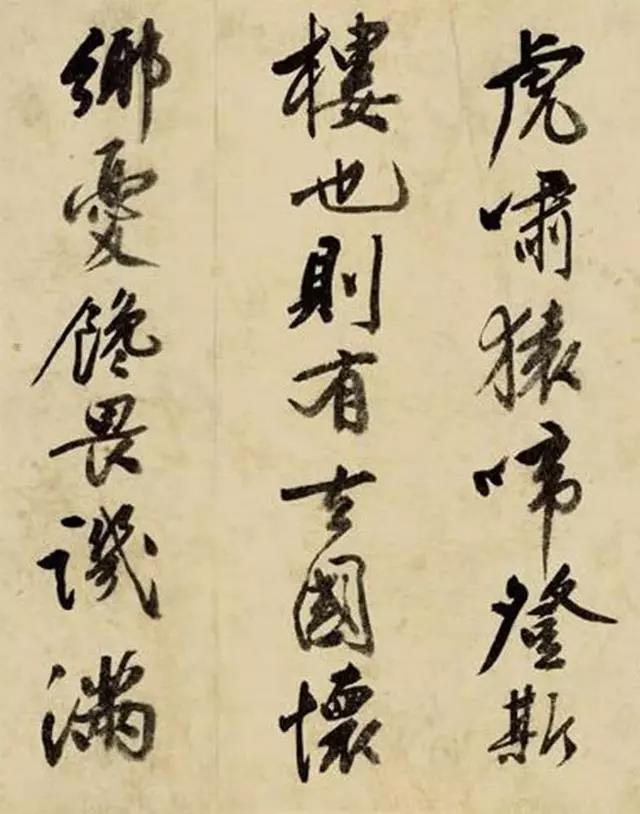 虎嘯猿啼登斯
樓也則有去國懷
鄉憂饞畏譏滿